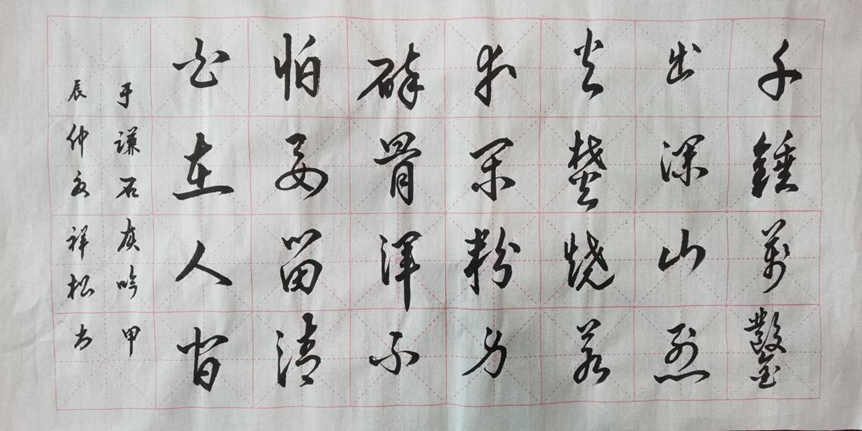 千錘萬鑿
出深山烈
火焚烧若
等闲粉身
碎骨浑不
怕要留清
白在人间
于谦石灰吟甲
辰仲夏祥松书